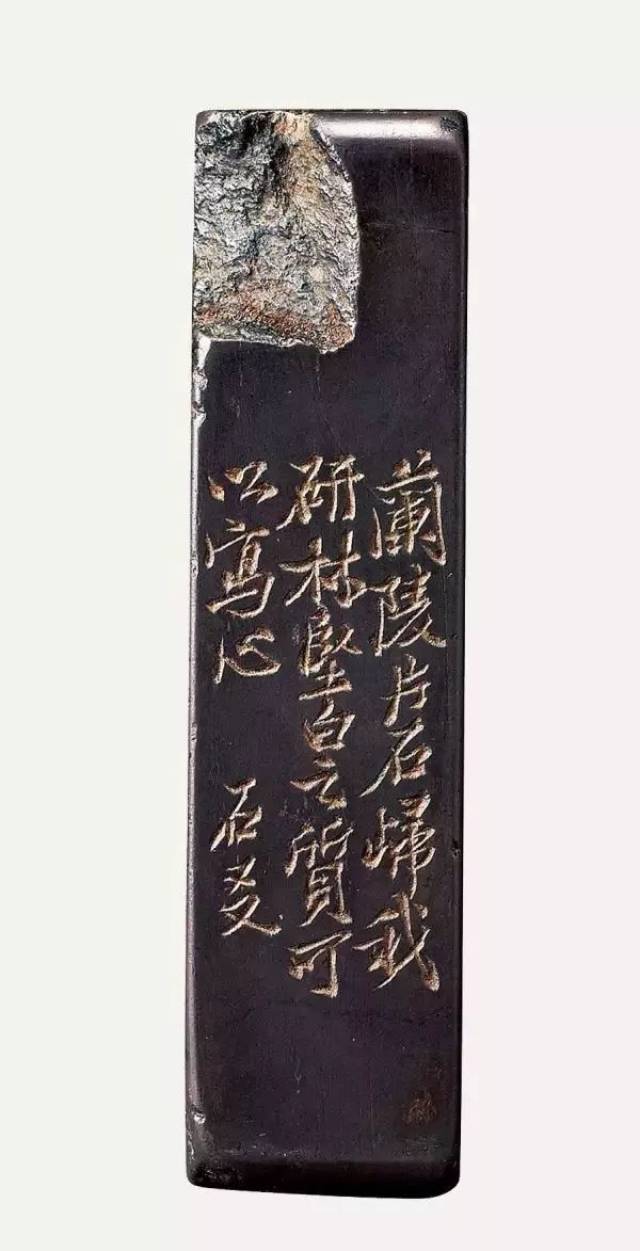 蘭陵片石歸我
研林堅白之質可
以寫心 石友